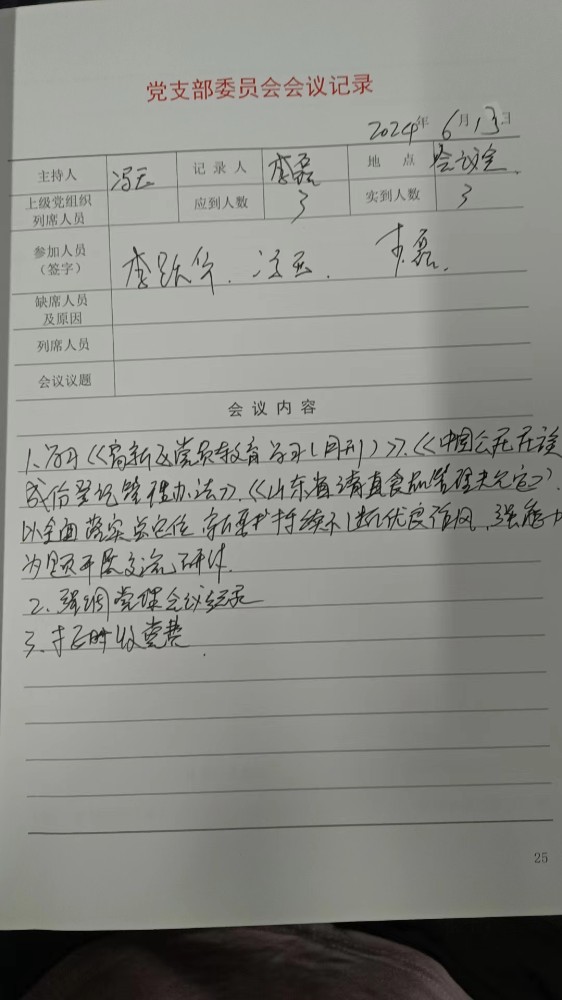 党支部委员会会议记录
2024年6月13日
主持人 冯玉 记录人 李磊 地点 会议室
上级党组织列席人员 应到人数 3 实到人数 3
参加人员（签字） 李跃华、冯玉、李磊
缺席人员及原因
列席人员
会议议题
会议内容
1、学习《高新区党员教育学习（月刊）》、《中国公民民族
成份登记管理办法》、《山东省清真食品管理规定》
以全面落实总定位 持续 优良作风、强能力
为题开展交流研讨.
2、强调党课会议记录
3、按时收党费.
25